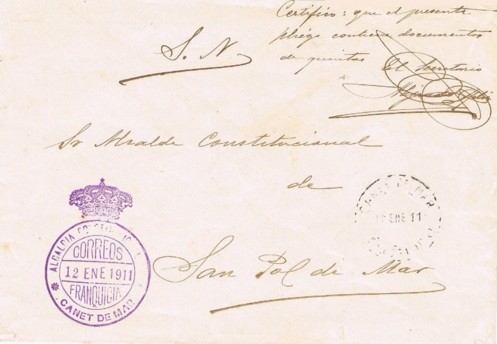 Certifico: que el presente
pliego contiene documentos
de quintas El Secretario
S. N.
Sr Alcalde Constitucional
de
San Pol de Mar
ALCALDIA CONSTITUCIONAL
CORREOS
12 ENE 1911
FRANQUICIA
CANET DE MAR
CANET DE MAR
12 ENE 11